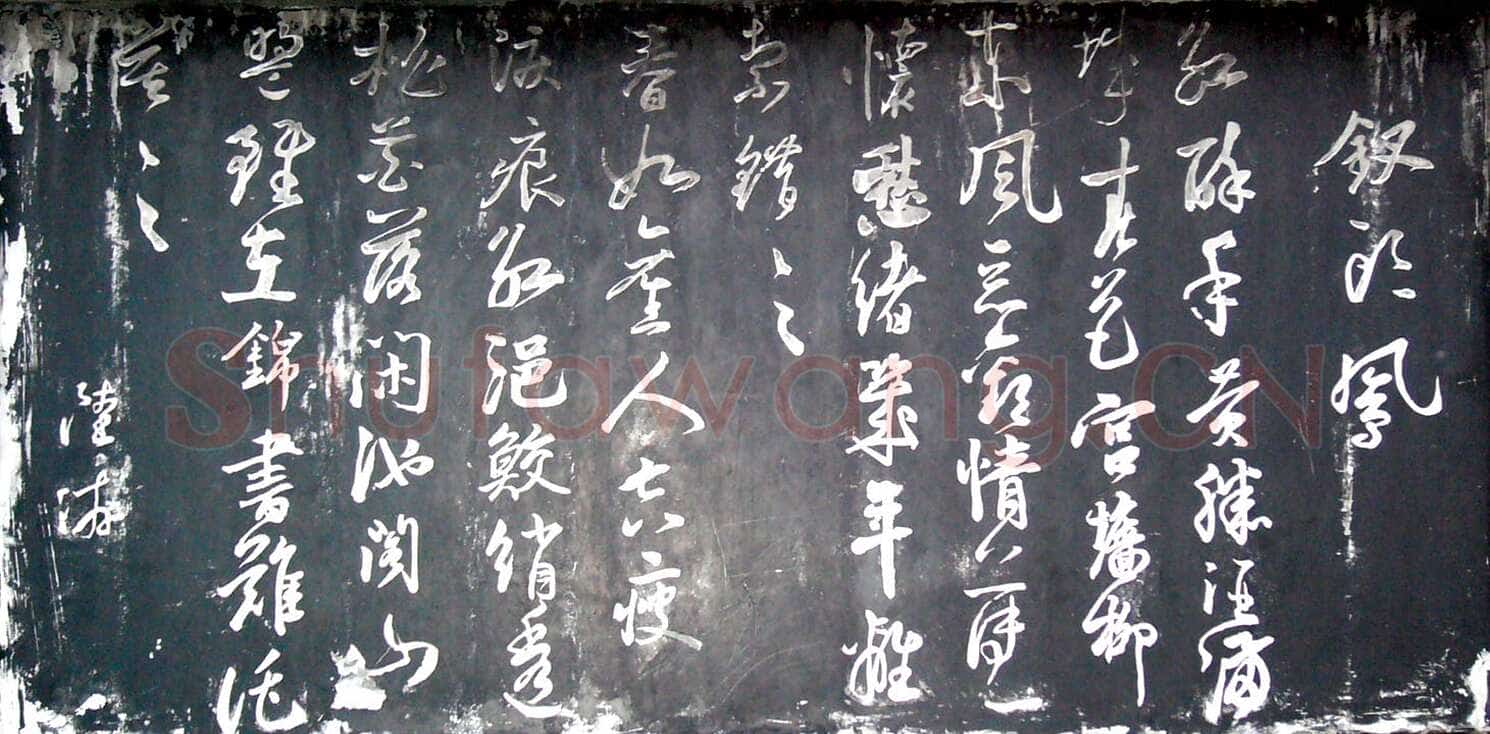 釵頭鳳
紅酥手黄縢酒滿
城春色宫牆柳
東風惡歡情薄一
懷愁緒幾年離
索錯々々
春如舊人空瘦
淚痕紅浥鮫綃透
桃花落閑池閣山
盟雖在錦書難託
莫々々
陸游
Shufawang.CN